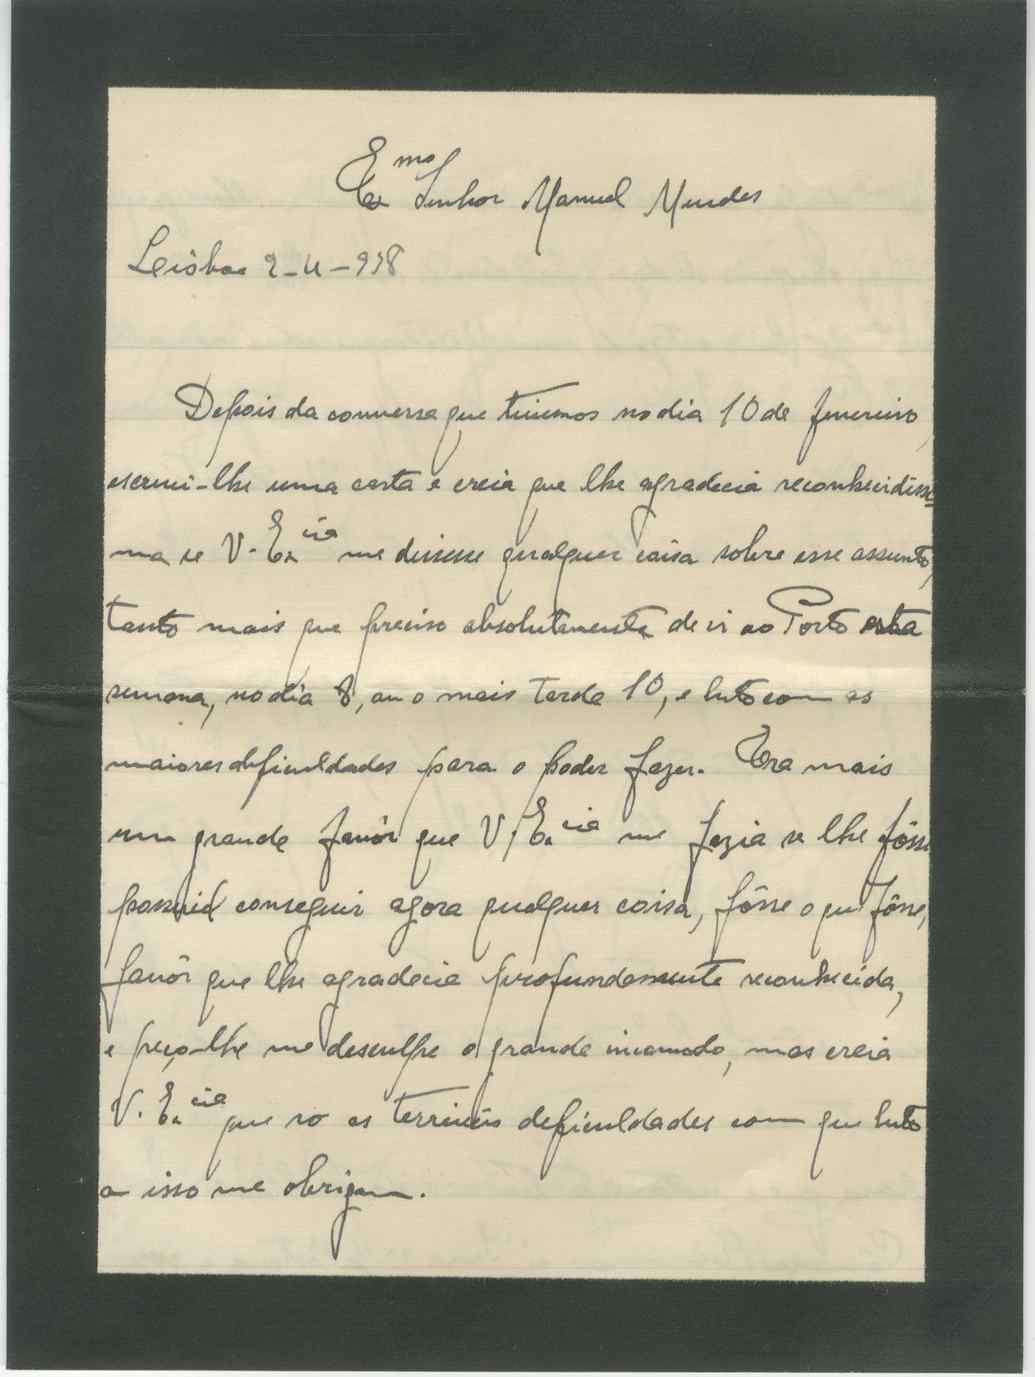 Ex.mo Senhor Manuel Mendes
Lisboa 2-4-938
Depois da conversa que tivemos no dia 10 de fevereiro,
escrevi-lhe uma carta e creia que lhe agradecia reconhecidissi=
ma se V. Ex.cia me dissesse qualquer coisa sobre esse assunto,
tanto mais que preciso absolutamente de ir ao Porto esta
semana, no dia 8, ou o mais tarde 10, e luto com as
maiores deficuldades para o poder fazer. Era mais
um grande favôr que V. Ex.cia me fazia se lhe fôsse
possivel conseguir agora qualquer coisa, fôsse o que fôsse,
favôr que lhe agradecia profundamente reconhecida,
e peço-lhe me desculpe o grande incomodo, mas creia
V. Ex.cia que só as terriveis deficuldades com que luto
a isso me obrigam.